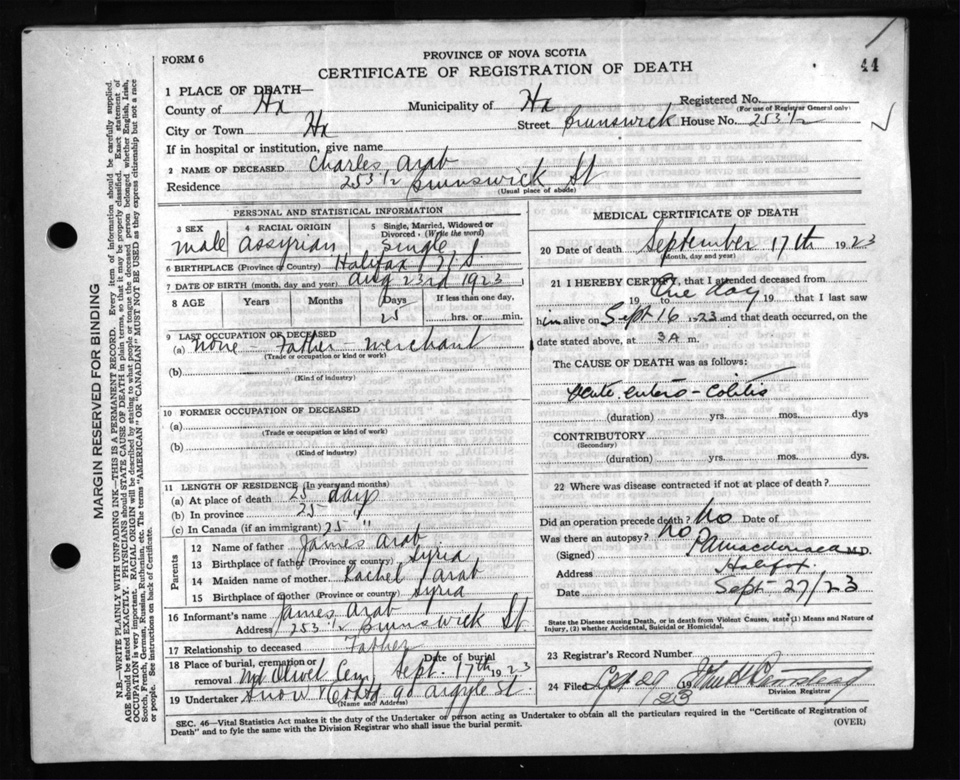 44
FORM 6
PROVINCE OF NOVA SCOTIA
CERTIFICATE OF REGISTRATION OF DEATH
1 PLACE OF DEATH—
County of Hx Municipality of Hx Registered No.
(For use of Registrar General only)
City or Town Hx Street Brunswick House No. 253 1/2
If in hospital or institution, give name
2 NAME OF DECEASED Charles Arab
Residence 253 1/2 Brunswick St
(Usual place of abode)
PERSONAL AND STATISTICAL INFORMATION
3 SEX 4 RACIAL ORIGIN 5 Single, Married, Widowed or Divorced. (Write the word)
male Assyrian Single
6 BIRTHPLACE (Province or Country) Halifax N.S.
7 DATE OF BIRTH (month, day and year) Aug 23rd 1923
8 AGE Years Months Days If less than one day,
25 hrs. or min.
9 LAST OCCUPATION OF DECEASED
(a) None - Father - merchant
(Trade or occupation or kind or work)
(b)
(Kind of industry)
10 FORMER OCCUPATION OF DECEASED
(a)
(Trade or occupation or kind of work)
(b)
(Kind of industry)
11 LENGTH OF RESIDENCE (In years and months)
(a) At place of death 25 days
(b) In province 25 "
(c) In Canada (if an immigrant) 25 "
Parents
12 Name of father James Arab
13 Birthplace of father (Province or country) Syria
14 Maiden name of mother Rachel Arab
15 Birthplace of mother (Province or country) Syria
16 Informant's name James Arab
Address 253 1/2 Brunswick St.
17 Relationship to deceased Father
18 Place of burial, cremation or removal Mt Olivet Cem Date of burial Sept. 17th 1923
19 Undertaker Snow & Co Ltd 90 Argyle St.
(Name and Address)
MEDICAL CERTIFICATE OF DEATH
20 Date of death September 17th 1923
(Month, day and year)
21 I HEREBY CERTIFY, that I attended deceased from
One day
19 to 19 that I last saw
him alive on Sept 16 1923 and that death occurred, on the
date stated above, at 3 A m.
The CAUSE OF DEATH was as follows:
Acute entero-colitis
(duration) yrs. mos. dys
CONTRIBUTORY
(Secondary)
(duration) yrs. mos. dys.
22 Where was disease contracted if not at place of death?
Did an operation precede death? No Date of
Was there an autopsy? No
(Signed) P A Macdonald M.D.
Address Halifax.
Date Sept 27/23
State the Disease causing Death, or in death from Violent Causes, state (1) Means and Nature of Injury, (2) whether Accidental, Suicidal or Homicidal.
23 Registrar's Record Number
24 Filed Sept 29 1923
Division Registrar
SEC. 46—Vital Statistics Act makes it the duty of the Undertaker or person acting as Undertaker to obtain all the particulars required in the "Certificate of Registration of
Death" and to fyle the same with the Division Registrar who shall issue the burial permit.
(OVER)
MARGIN RESERVED FOR BINDING
N.B.—WRITE PLAINLY WITH UNFADING INK—THIS IS A PERMANENT RECORD. Every item of information should be carefully supplied.
AGE should be stated EXACTLY. PHYSICIANS should STATE CAUSE OF DEATH in plain terms, so that it may be properly classified. Exact statement of
OCCUPATION is very important. RACIAL ORIGIN will be described by stating to what people or tongue the deceased person belonged whether English, Irish,
Scotch, French, German, Russian, Ruthenian, etc. The terms "AMERICAN" OR "CANADIAN" MUST NOT BE USED as they express citizenship but not a race
or people. See instructions on back of Certificate.